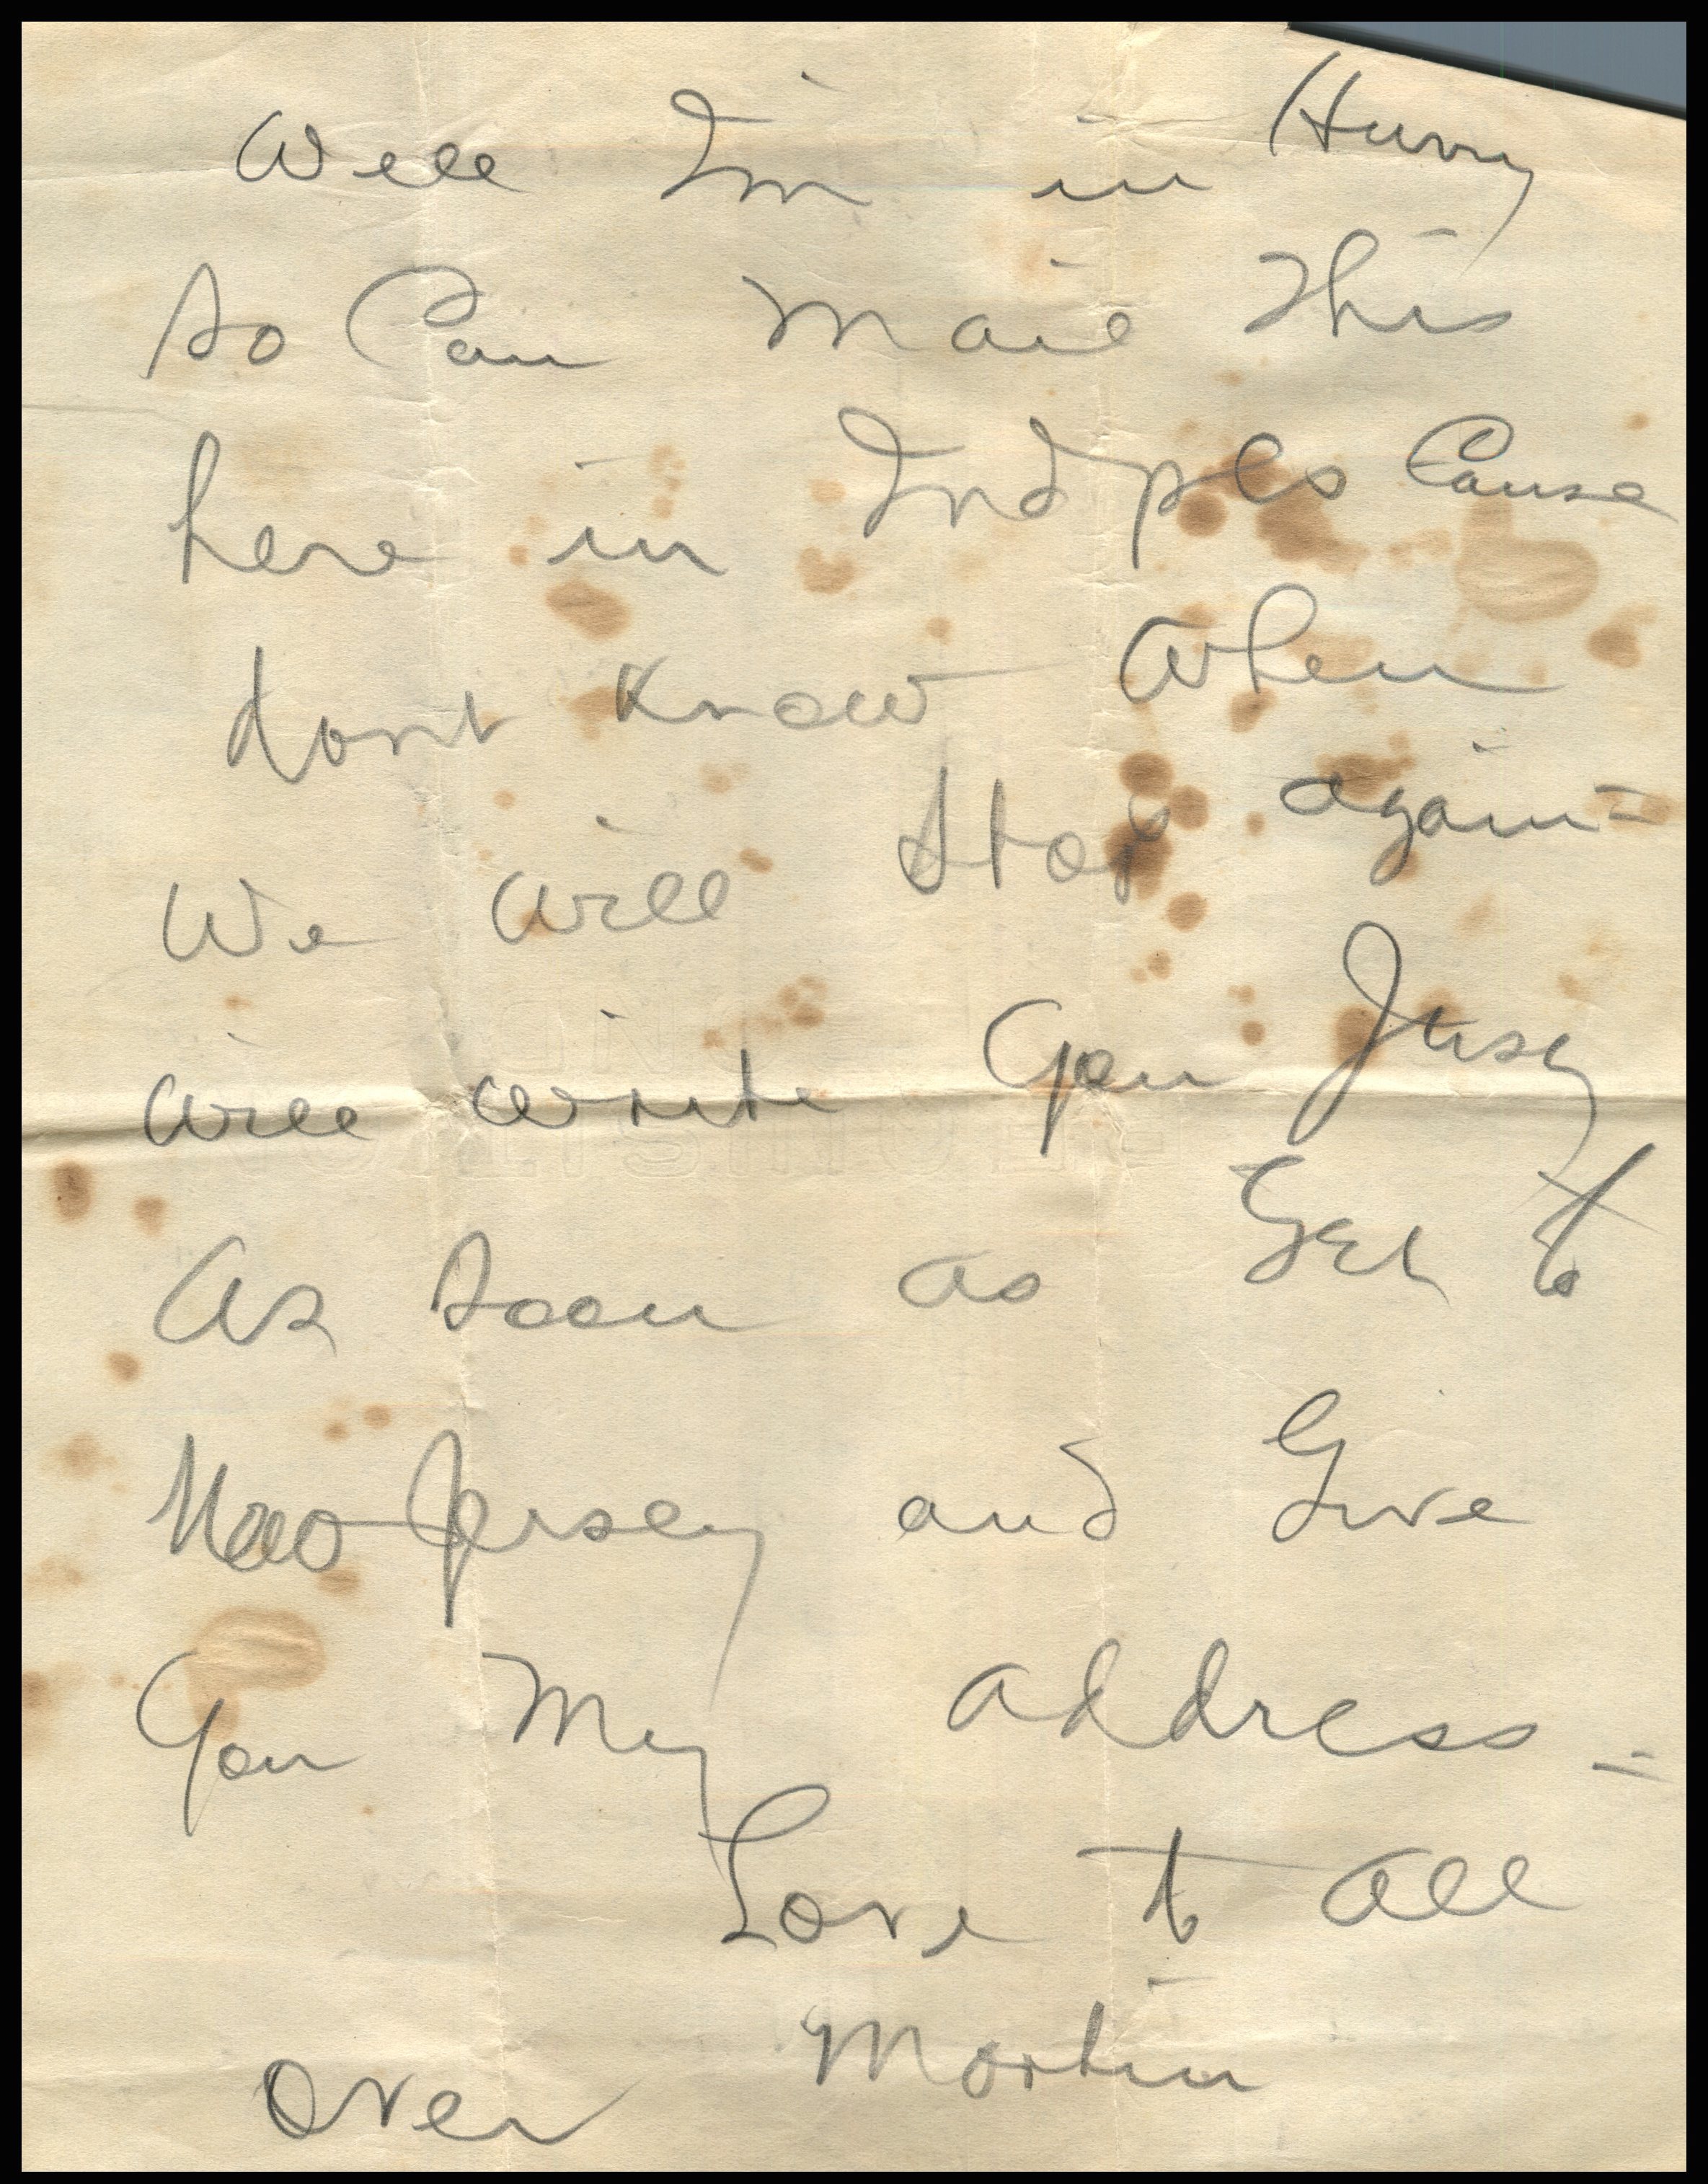 Well I'm in Hurry
so Can mail This
here in Indpls Cause
dont know when
We will stop again =
will write you
As soon as Get to
New Jersey and Give
You My address =
Love to all
Martin
over